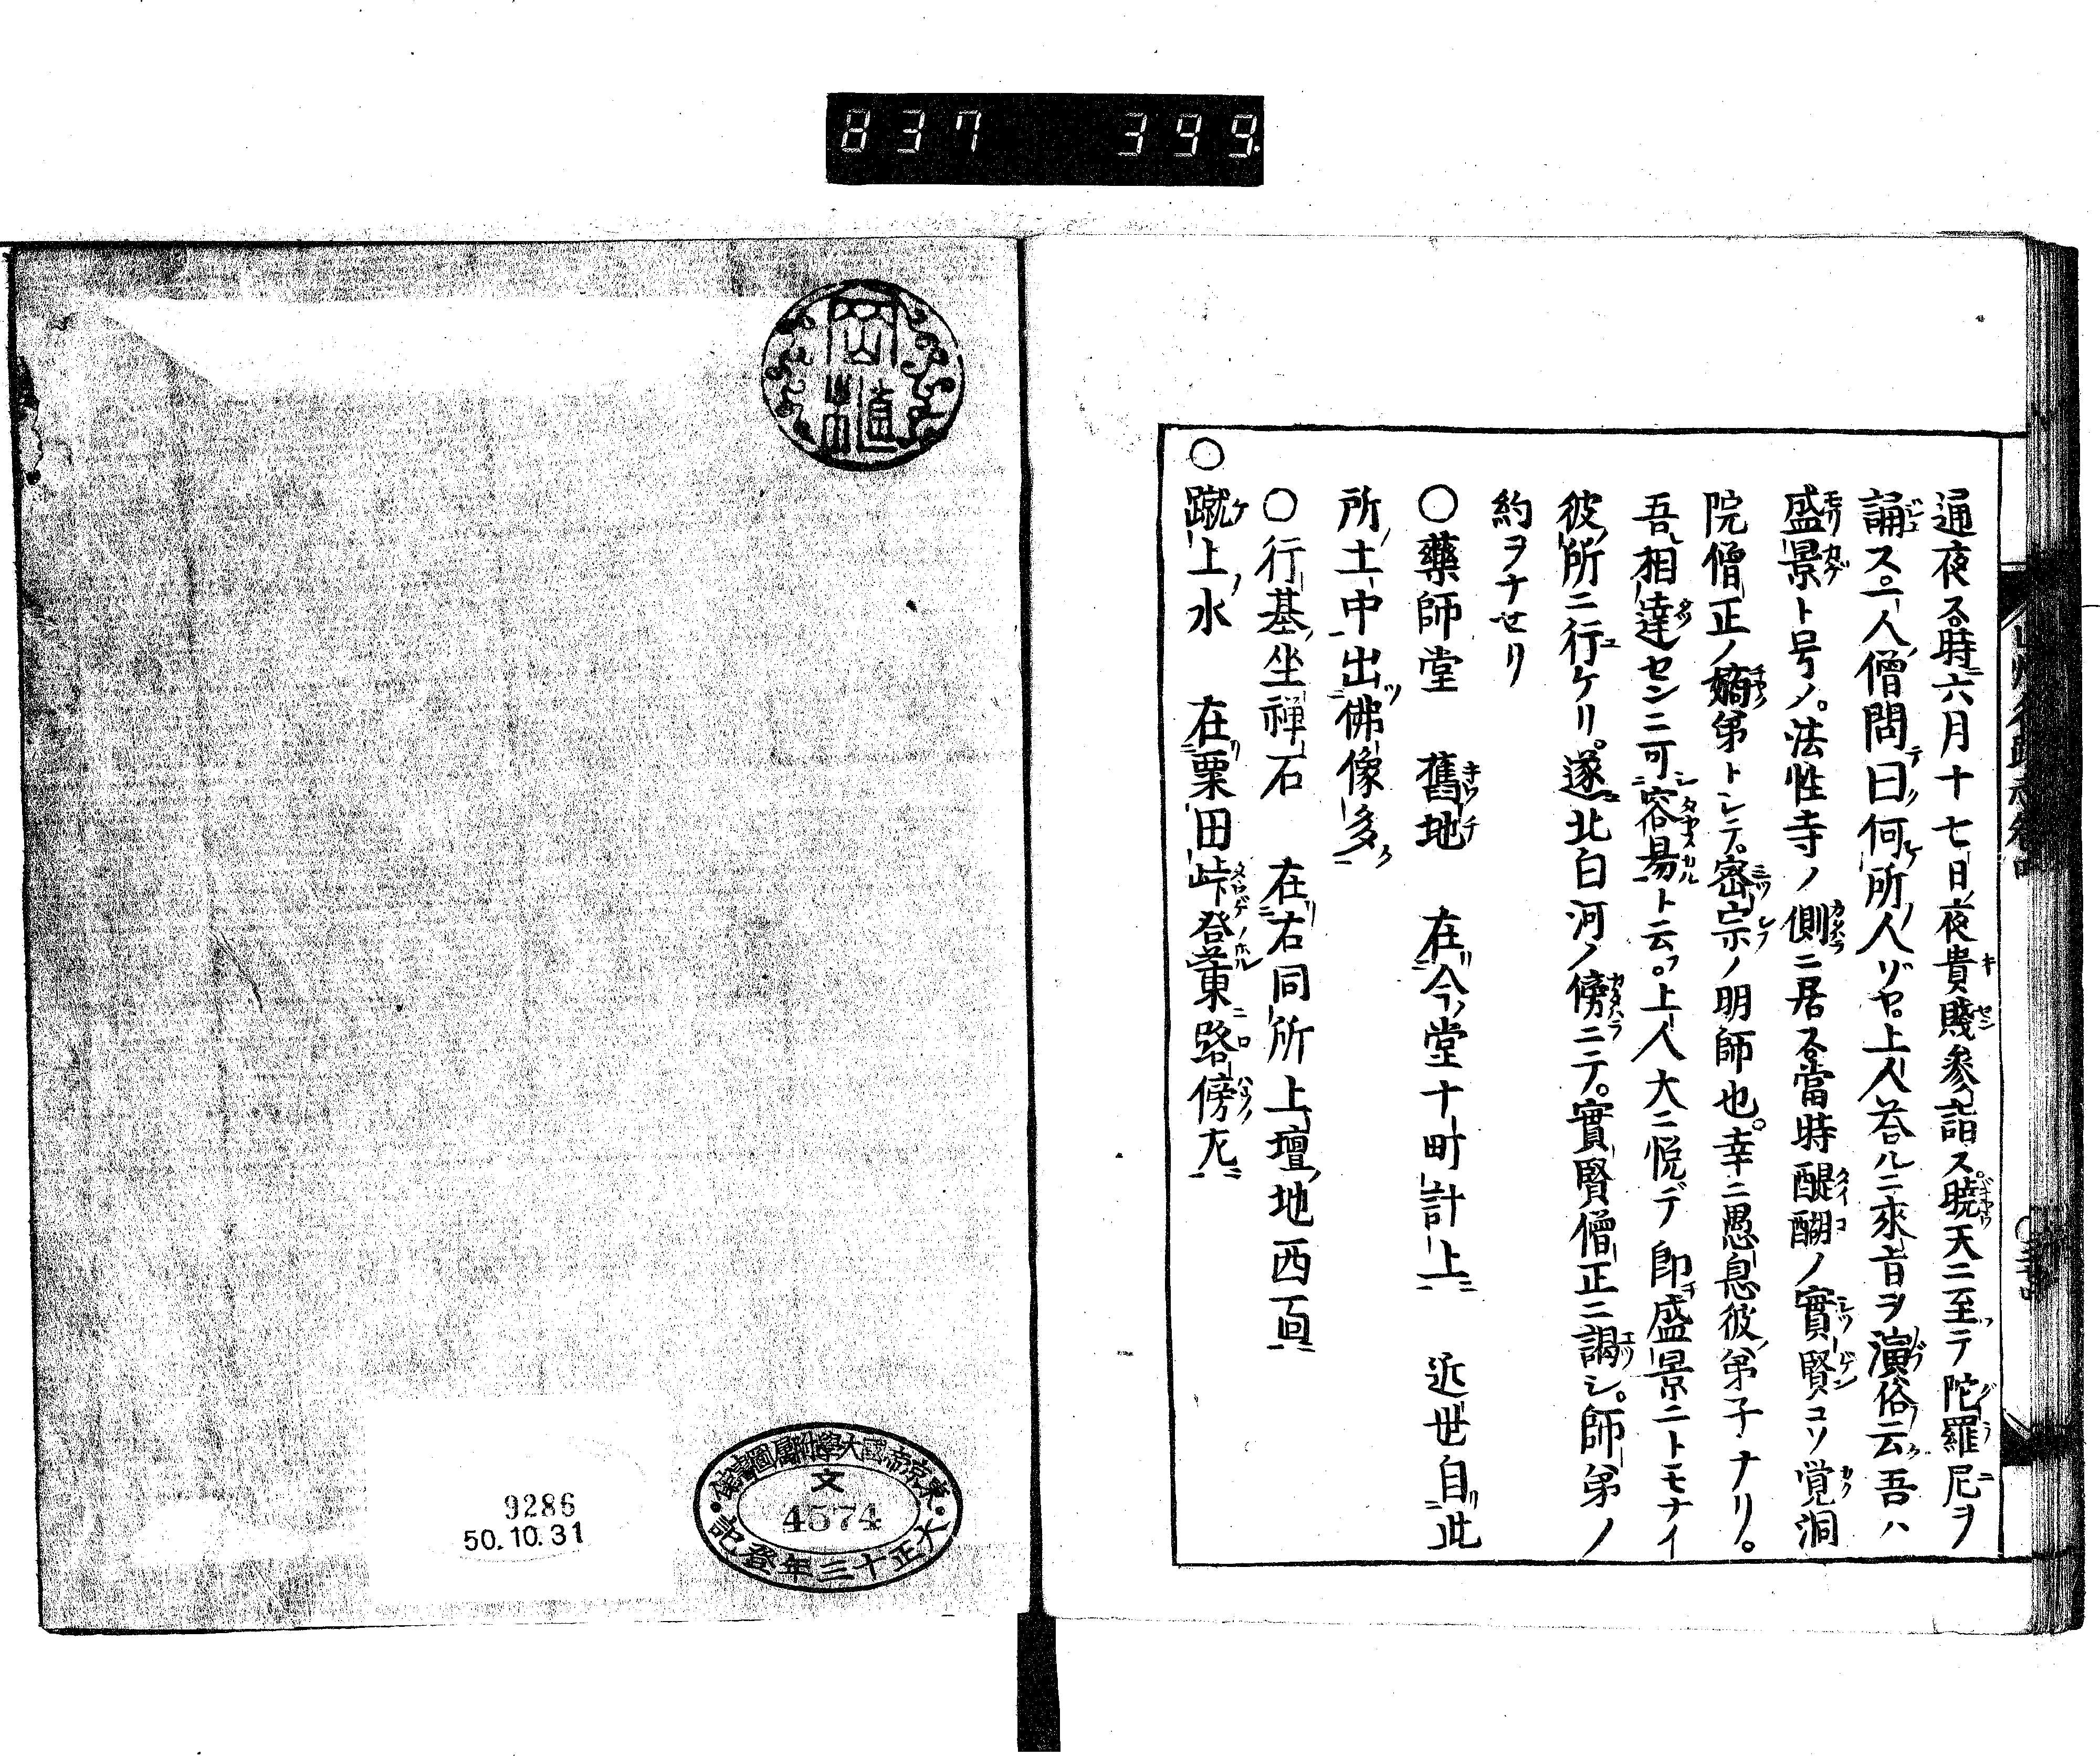 837 399
通夜ス時六月十七日夜貴賤参詣ス暁天ニ至テ陀羅尼ヲ
誦ス二人ノ僧問テ曰何所ノ人ゾヤ上人荅ルニ來旨ヲ演俗云吾ハ
盛景ト号ノ。法性寺ノ側ニ居ス當時醍醐ノ實賢コソ覚洞
院僧正ノ嫡弟トシテ。密宗ノ明師也。幸ニ愚息彼弟子ナリ。
吾相達センニ可容易ト云フ。上人大ニ悦デ即盛景ニトモナイ
彼所ニ行ケリ。遂北白河ノ傍ニテ。實賢僧正ニ謁シ。師弟ノ
約ヲナセリ
○藥師堂 舊地 在今堂十町計上 近世自此
所土中出佛像多
○行基坐禅石 在右同所上壇地西百
○蹴上水 在粟田峠登東路傍左
東京帝國大學附属圖書館
文
4574
大正十三年登記
9286
50.10.31